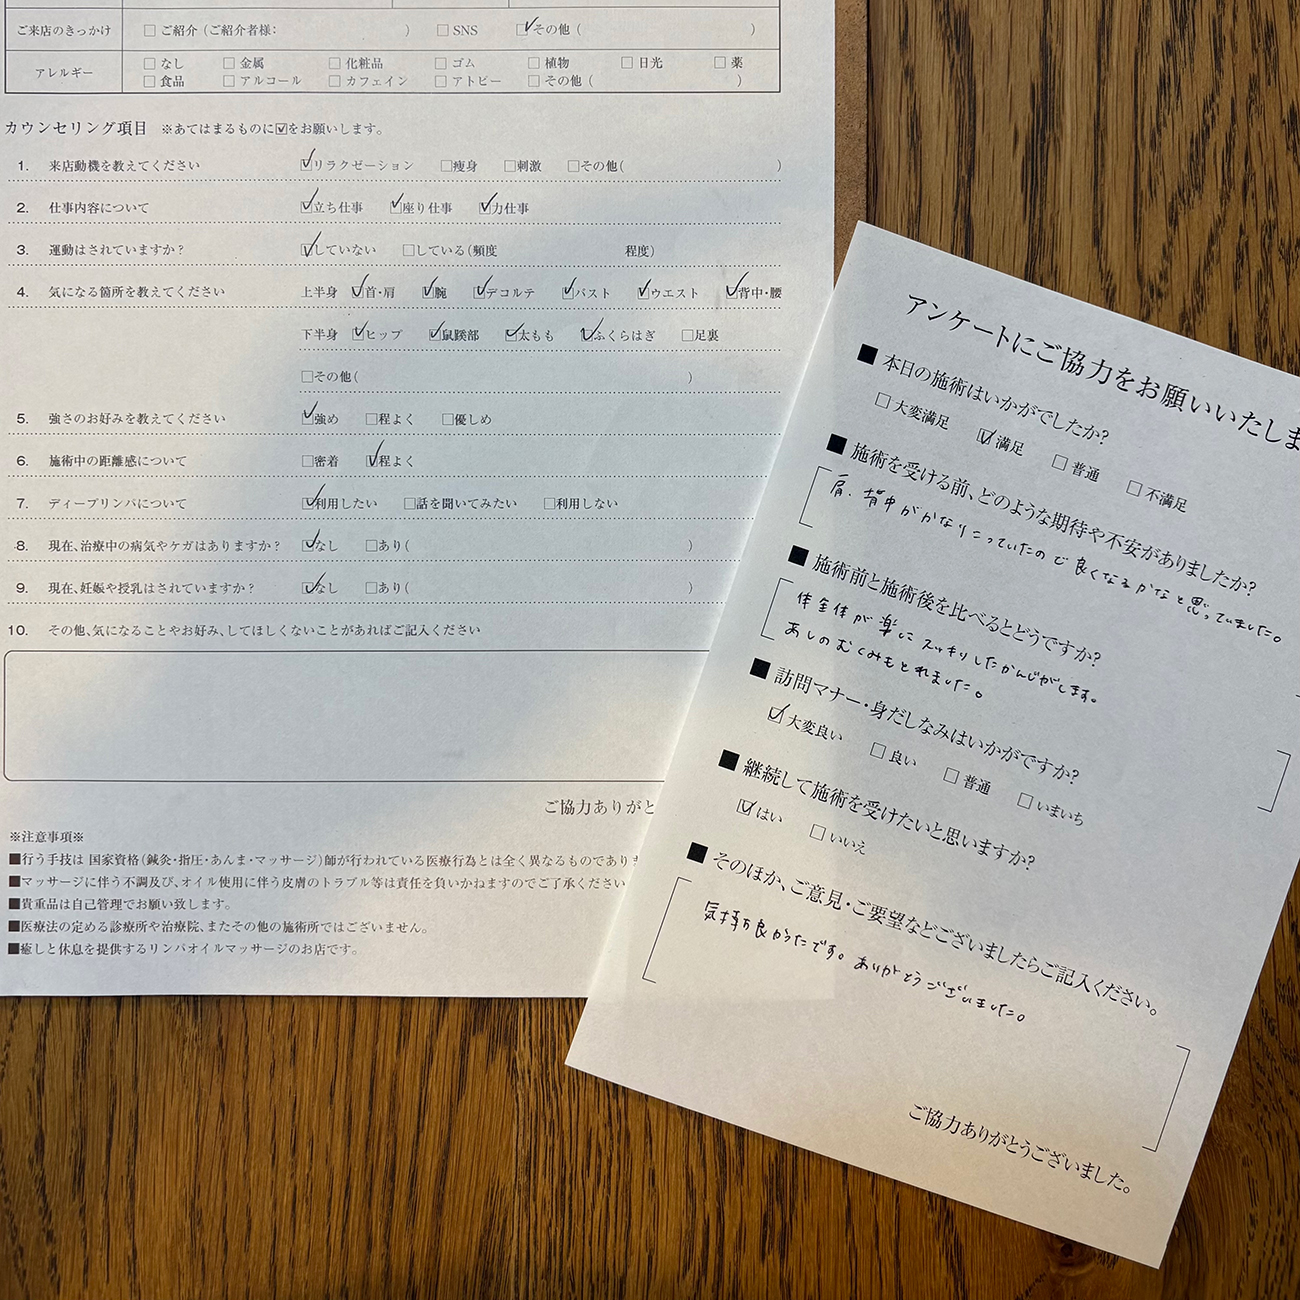 ご来店のきっかけ □ご紹介(ご紹介者様: ) □SNS ☑その他( )
アレルギー □なし □金属 □化粧品 □ゴム □植物 □日光 □薬
□食品 □アルコール □カフェイン □アトピー □その他( )
カウンセリング項目 ※あてはまるものに☑をお願いします。
1. 来店動機を教えてください ☑リラクゼーション □痩身 □刺激 □その他( )
2. 仕事内容について ☑立ち仕事 ☑座り仕事 ☑力仕事
3. 運動はされていますか? ☑していない □している(頻度 程度)
4. 気になる箇所を教えてください 上半身 ☑首・肩 ☑腕 ☑デコルテ ☑バスト ☑ウエスト ☑背中・腰
下半身 ☑ヒップ ☑鼠蹊部 ☑太もも ☑ふくらはぎ □足裏
□その他( )
5. 強さのお好みを教えてください ☑強め □程よく □優しめ
6. 施術中の距離感について □密着 ☑程よく
7. ディープリンパについて ☑利用したい □話を聞いてみたい □利用しない
8. 現在、治療中の病気やケガはありますか? ☑なし □あり( )
9. 現在、妊娠や授乳はされていますか? ☑なし □あり( )
10. その他、気になることやお好み、してほしくないことがあればご記入ください
ご協力ありがと
※注意事項※
■行う手技は 国家資格(鍼灸・指圧・あんま・マッサージ)師が行われている医療行為とは全く異なるものであり
■マッサージに伴う不調及び、オイル使用に伴う皮膚のトラブル等は責任を負いかねますのでご了承ください
■貴重品は自己管理でお願い致します。
■医療法の定める診療所や治療院、またその他の施術所ではございません。
■癒しと休息を提供するリンパオイルマッサージのお店です。
アンケートにご協力をお願いいたしま
■ 本日の施術はいかがでしたか?
□大変満足 ☑満足 □普通 □不満足
■ 施術を受ける前、どのような期待や不安がありましたか?
肩、背中がかなりこっていたので良くなるかなと思っていました。
■ 施術前と施術後を比べるとどうですか?
体全体が楽にスッキリしたかんじがします。
あしのむくみもとれました。
■ 訪問マナー・身だしなみはいかがですか?
☑大変良い □良い □普通 □いまいち
■ 継続して施術を受けたいと思いますか?
☑はい □いいえ
■ そのほか、ご意見・ご要望などございましたらご記入ください。
気持ち良かったです。ありがとうございました。
ご協力ありがとうございました。